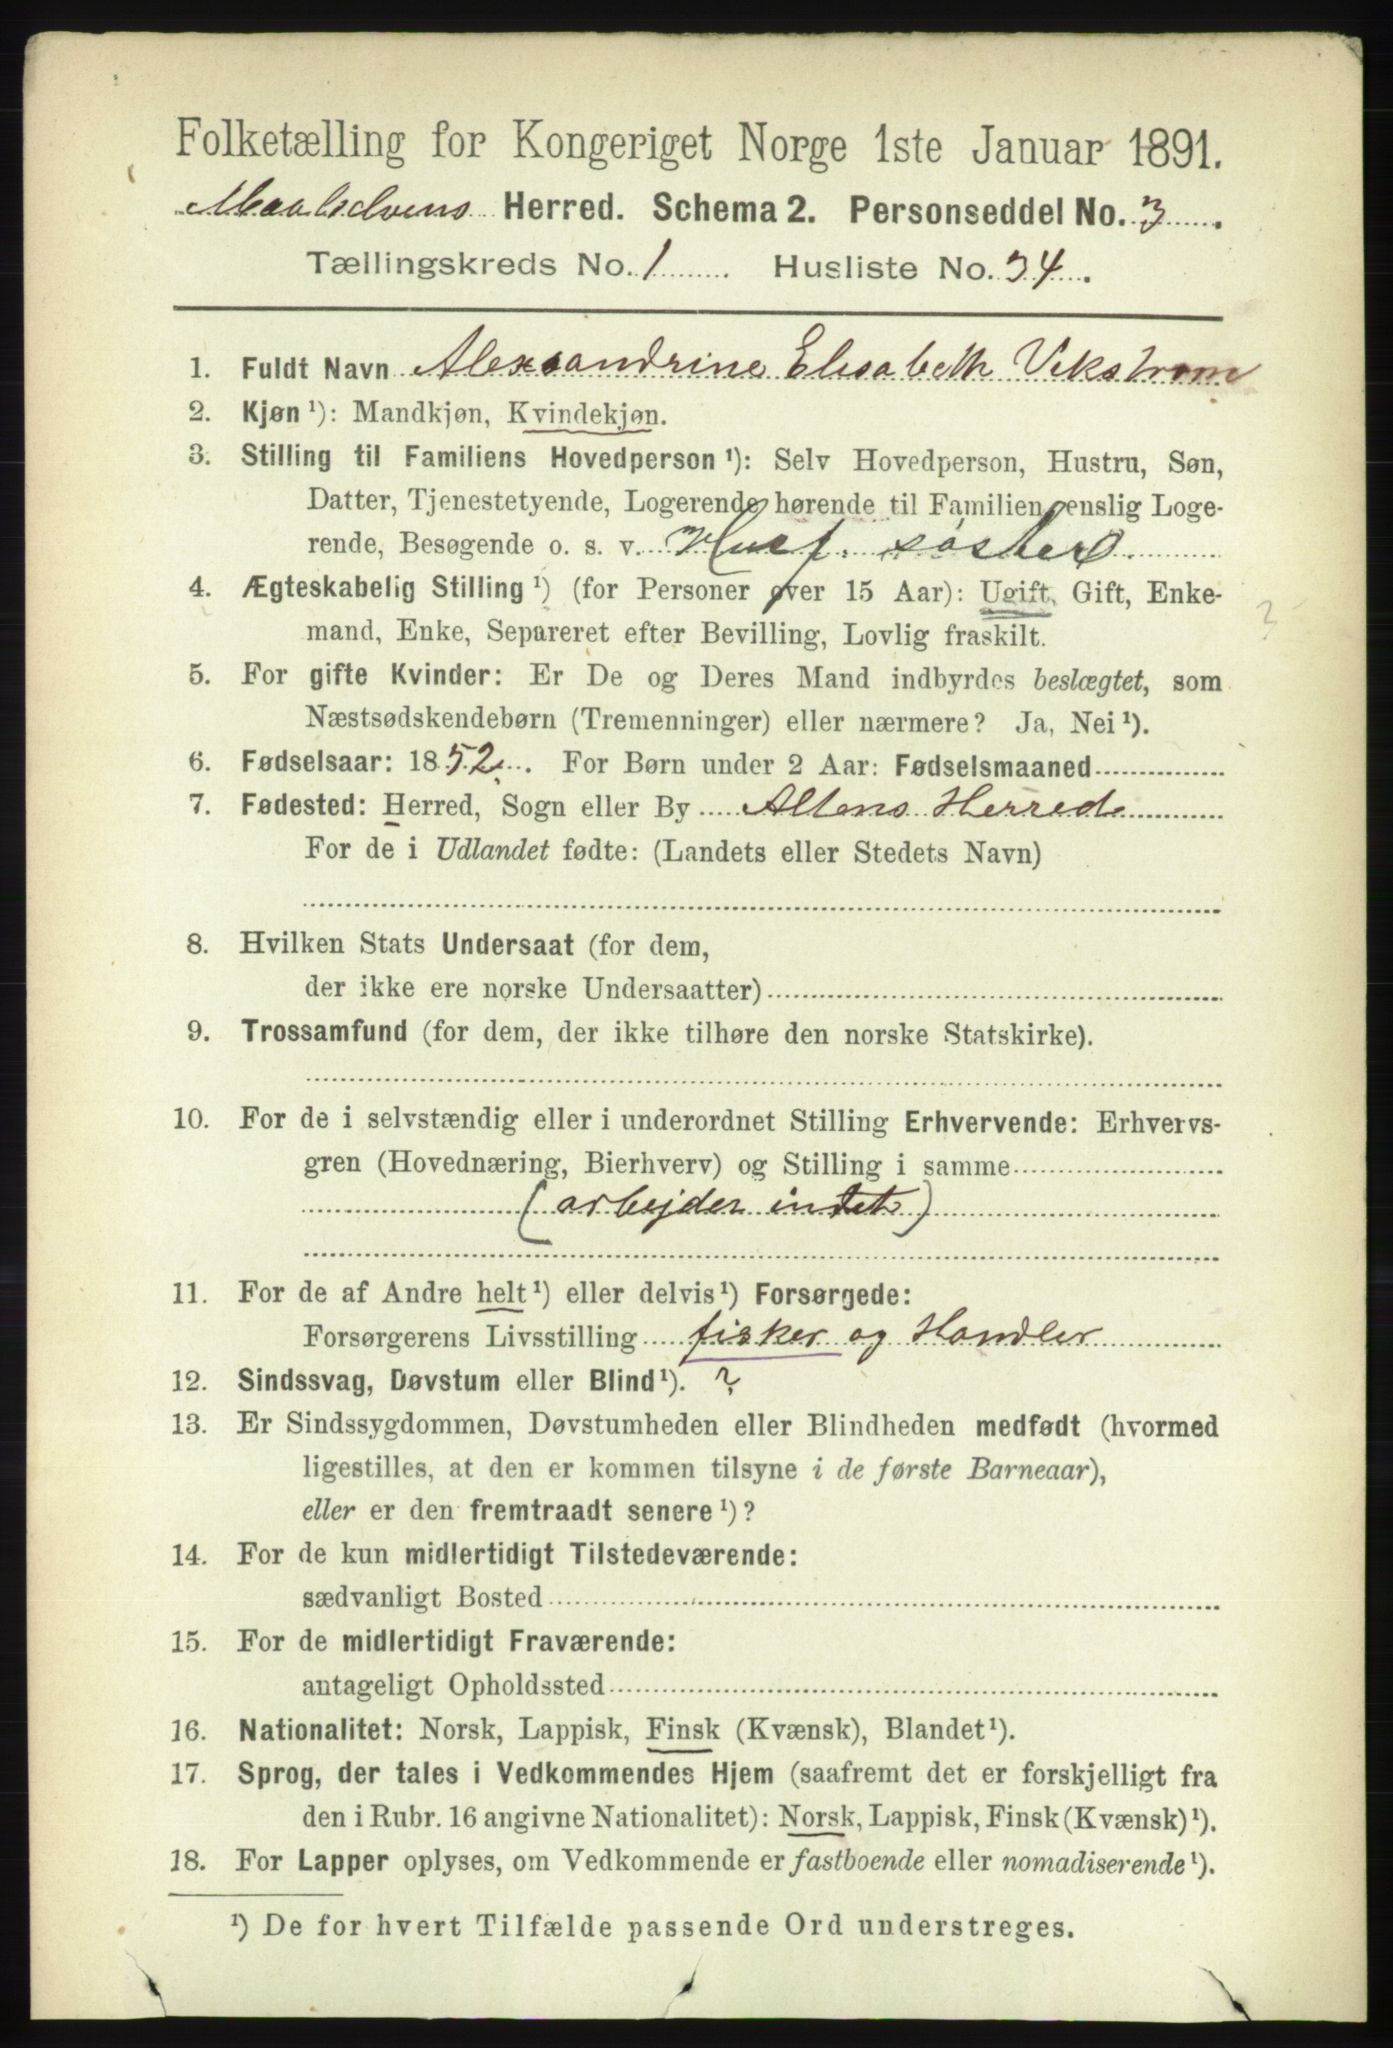 Folketælling for Kongeriget Norge 1ste Januar 1891.
Maalselvens Herred. Schema 2. Personseddel No. 3.
Tællingskreds No. 1 Husliste No. 34.
1. Fuldt Navn Alexsandrine Elisabeth Vekstrøm
2. Kjøn ¹): Mandkjøn, Kvindekjøn.
3. Stilling til Familiens Hovedperson ¹): Selv Hovedperson, Hustru, Søn,
Datter, Tjenestetyende, Logerende hørende til Familien, enslig Loge-
rende, Besøgende o. s. v. Husf. søster
4. Ægteskabelig Stilling ¹) (for Personer over 15 Aar): Ugift, Gift, Enke-
mand, Enke, Separeret efter Bevilling, Lovlig fraskilt.
3
5. For gifte Kvinder: Er De og Deres Mand indbyrdes beslægtet, som
Næstsødskendebørn (Tremenninger) eller nærmere? Ja, Nei ¹).
6. Fødselsaar: 1852. For Børn under 2 Aar: Fødselsmaaned
7. Fødested: Herred, Sogn eller By Altens Herred
For de i Udlandet fødte: (Landets eller Stedets Navn)
8. Hvilken Stats Undersaat (for dem,
der ikke ere norske Undersaatter)
9. Trossamfund (for dem, der ikke tilhøre den norske Statskirke).
10. For de i selvstændig eller i underordnet Stilling Erhvervende: Erhvervs-
gren (Hovednæring, Bierhverv) og Stilling i samme
(arbejder intet)
11. For de af Andre helt ¹) eller delvis ¹) Forsørgede:
Forsørgerens Livsstilling fisker og Handler
12. Sindssvag, Døvstum eller Blind ¹). ?
13. Er Sindssygdommen, Døvstumheden eller Blindheden medfødt (hvormed
ligestilles, at den er kommen tilsyne i de første Barneaar),
eller er den fremtraadt senere ¹)?
14. For de kun midlertidigt Tilstedeværende:
sædvanligt Bosted
15. For de midlertidigt Fraværende:
antageligt Opholdssted
16. Nationalitet: Norsk, Lappisk, Finsk (Kvænsk), Blandet ¹).
17. Sprog, der tales i Vedkommendes Hjem (saafremt det er forskjelligt fra
den i Rubr. 16 angivne Nationalitet): Norsk, Lappisk, Finsk (Kvænsk) ¹).
18. For Lapper oplyses, om Vedkommende er fastboende eller nomadiserende ¹).
¹) De for hvert Tilfælde passende Ord understreges.